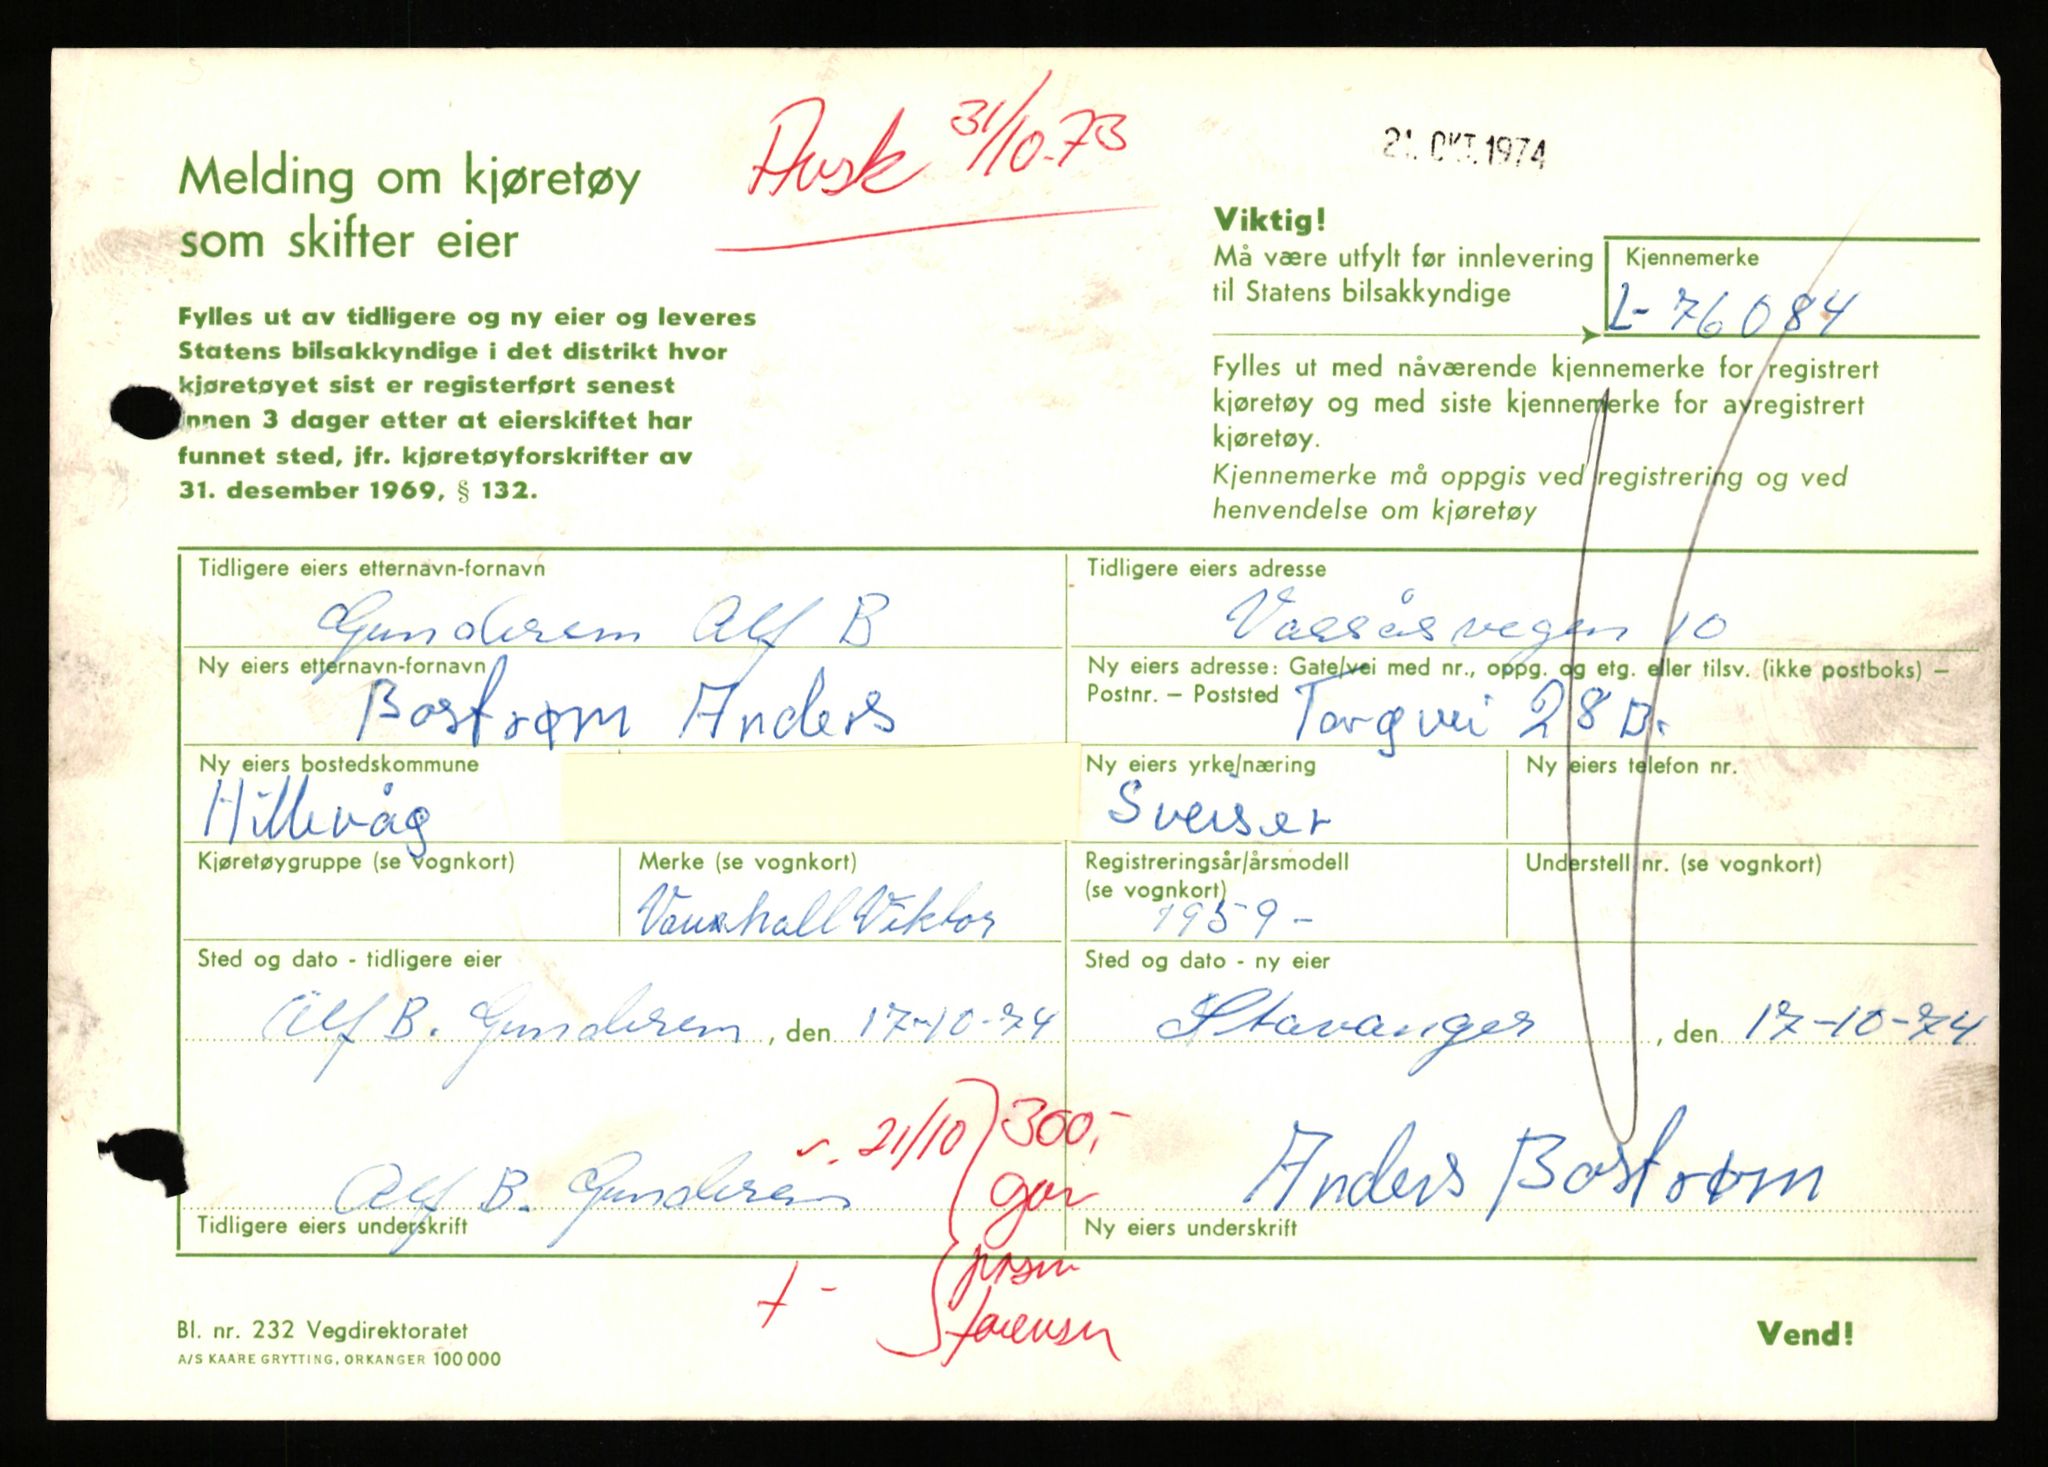 Avsk 31/10-73
21. OKT. 1974
Melding om kjøretøy
som skifter eier
Fylles ut av tidligere og ny eier og leveres
Statens bilsakkyndige i det distrikt hvor
kjøretøyet sist er registerført senest
innen 3 dager etter at eierskiftet har
funnet sted, jfr. kjøretøyforskrifter av
31. desember 1969, § 132.
Viktig!
Må være utfylt før innlevering
til Statens bilsakkyndige
Kjennemerke
L-76084
Fylles ut med nåværende kjennemerke for registrert
kjøretøy og med siste kjennemerke for avregistrert
kjøretøy.
Kjennemerke må oppgis ved registrering og ved
henvendelse om kjøretøy
Tidligere eiers etternavn-fornavn
Gundersen Alf B
Tidligere eiers adresse
Vassåsvegen 10
Ny eiers etternavn-fornavn
Bostrøm Anders
Ny eiers adresse: Gate/vei med nr., oppg. og etg. eller tilsv. (ikke postboks) –
Postnr. – Poststed
Torgvei 28 B.
Ny eiers bostedskommune
Hillevåg
Ny eiers yrke/næring
Sveiser
Ny eiers telefon nr.
Kjøretøygruppe (se vognkort)
Merke (se vognkort)
Vauxhall Viktor
Registreringsår/årsmodell
(se vognkort)
1959 -
Understell nr. (se vognkort)
Sted og dato - tidligere eier
Alf B. Gundersen, den 17-10-74
Sted og dato - ny eier
Stavanger, den 17-10-74
21/10
300,-
Alf B. Gundersen
Tidligere eiers underskrift
Anders Bostrøm
Ny eiers underskrift
Bl. nr. 232 Vegdirektoratet
A/S KAARE GRYTTING, ORKANGER 100 000
Vend!